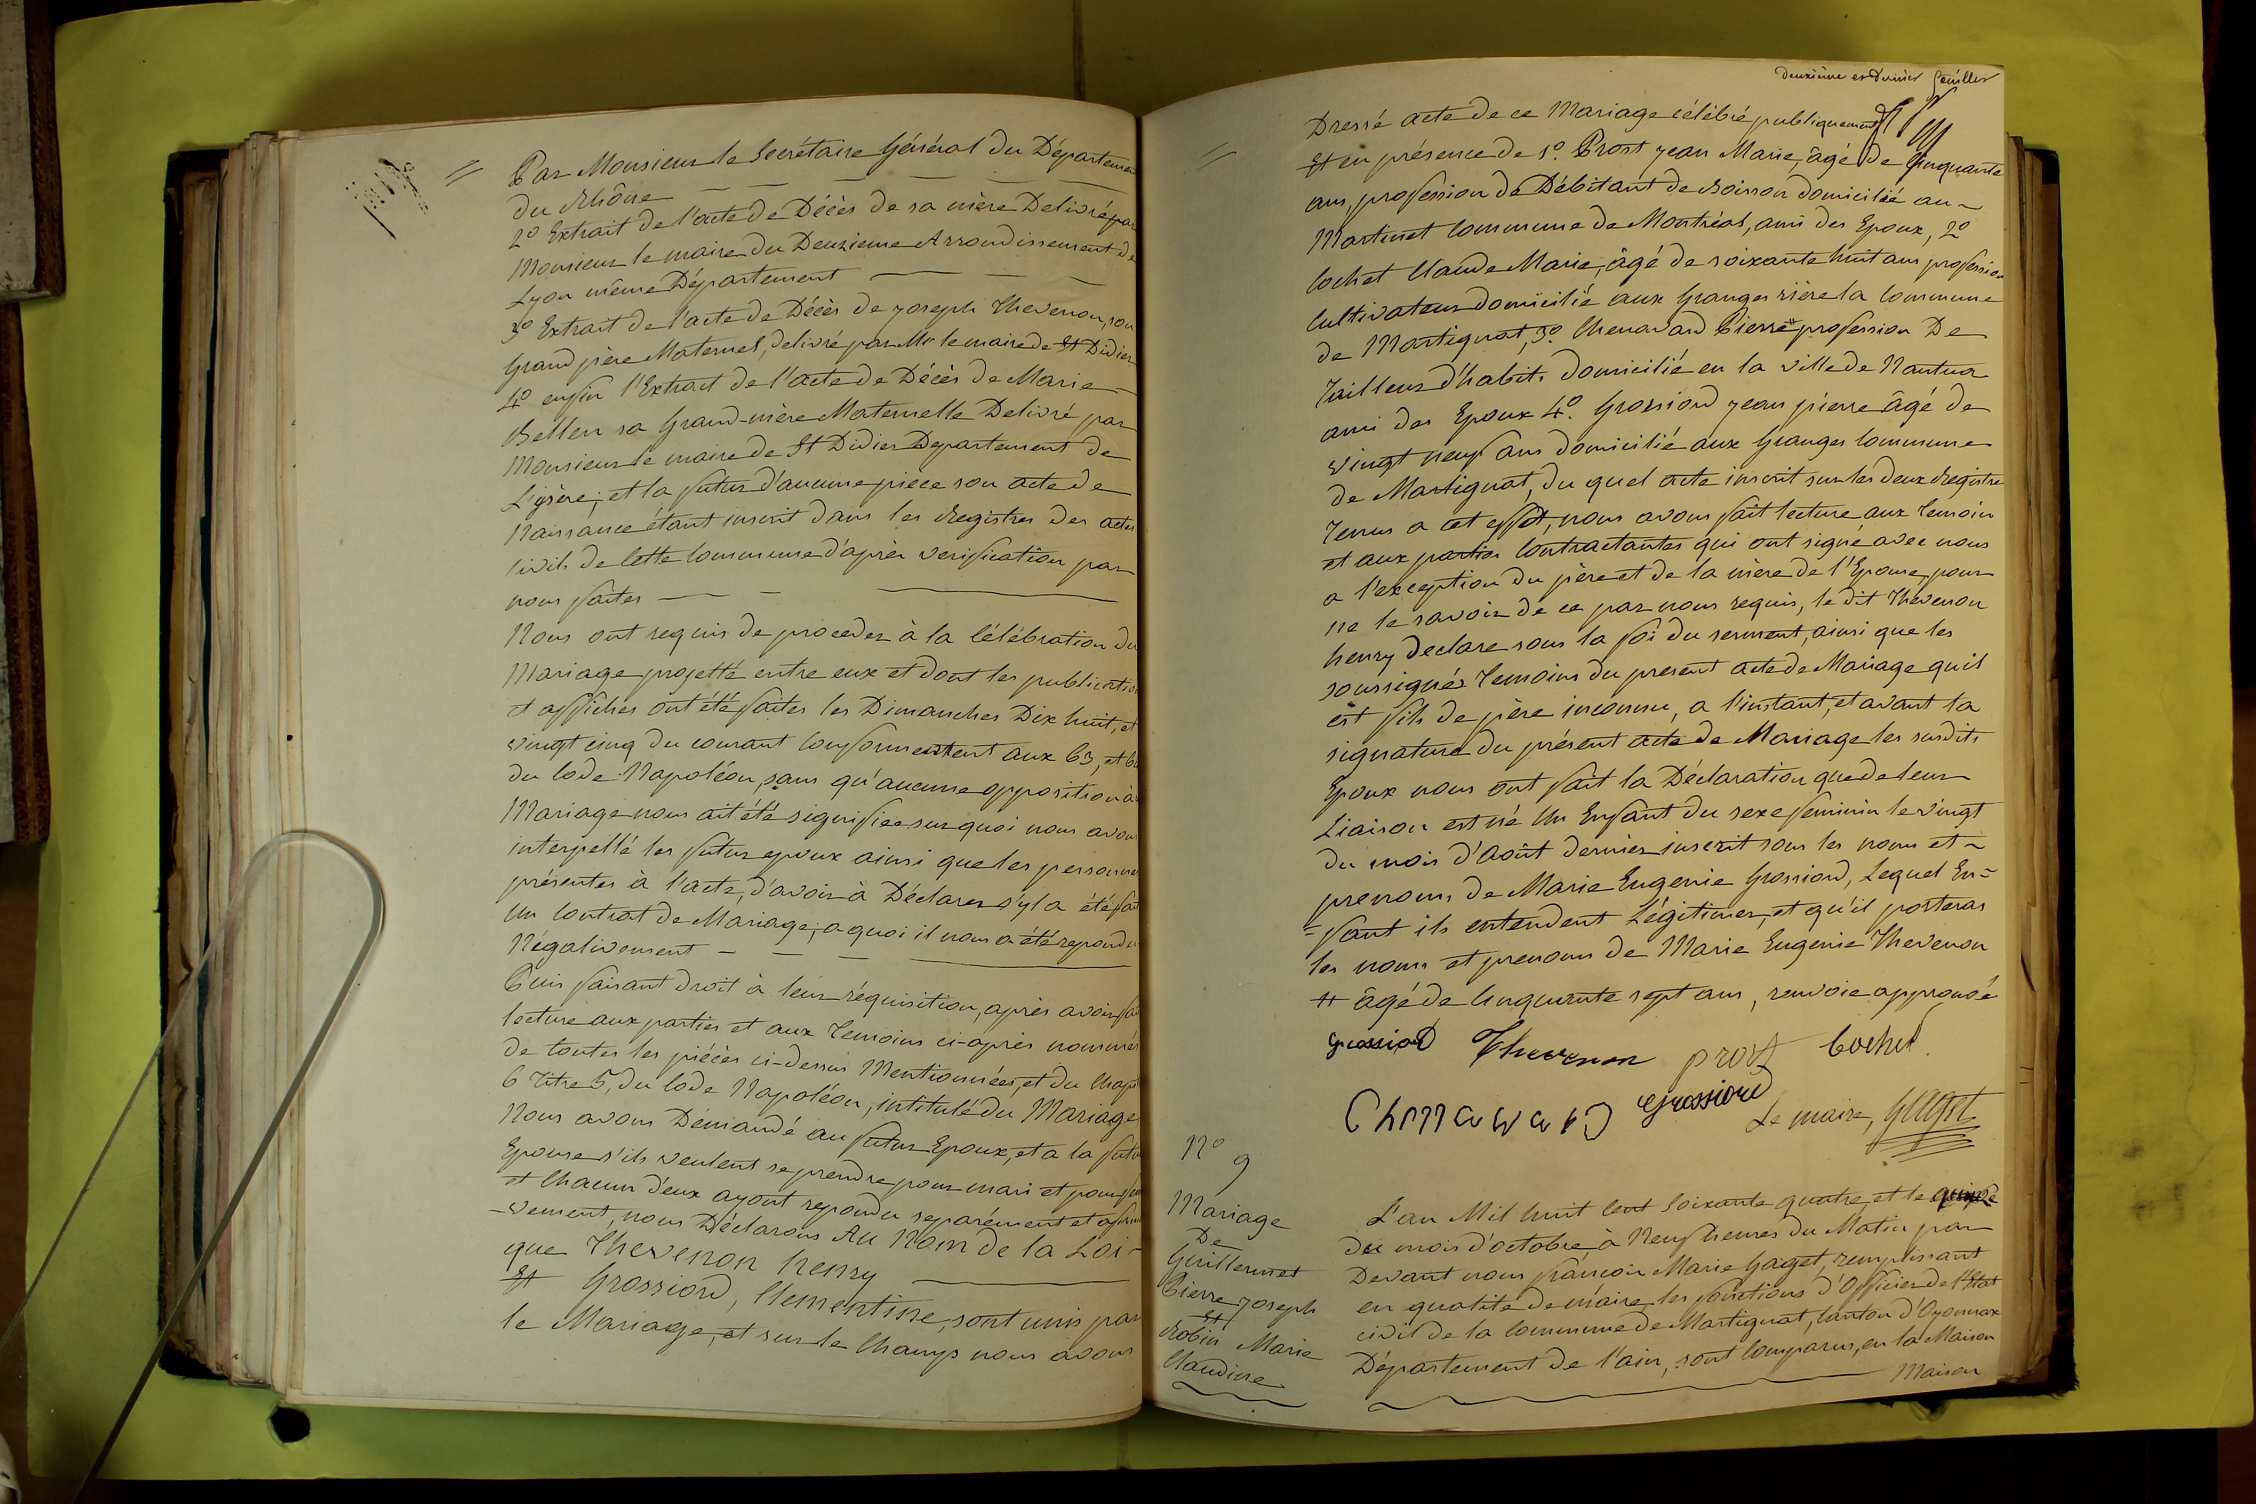 Par Monsieur le Secrétaire Général du Département
du Rhône
2º Extrait de l'acte de Décès de sa mère Delivré par
Monsieur le maire du Deuxieme Arrondissement de
Lyon même Département
3º Extrait de l'acte de Décès de joseph Thevenon, son
Grand père Maternel, delivré par Mr le maire de St Didier
4º enfin l'Extrait de l'acte de Décès de Marie
Bellen sa Grand-mère Maternelle Delivré par
Monsieur le maire de St Didier Departement de
L'ysère; et la futur d'aucune pièce son acte de
Naissance étant inscrit dans les Registres des actes
civils de Cette Commune d'après verification par
nous faites
Nous ont requis de proceder à la Célébration du
Mariage projetté entre eux et dont les publication
et affiches ont été faites les Dimanches Dix huit, et
vingt cinq du courant Conformement aux 63, et 6
du Code Napoléon, sans qu'aucune opposition à
Mariage nous ait été signifiée sur quoi nous avons
interpellé les futur epoux ainsi que les personnes
présentes à l'acte, d'avoir à Déclarer s'yl a été fait
Un Contrat de Mariage; a quoi il nous a été repondu
Négativement
Puis faisant droit à leur réquisition, après avoir fa
lecture aux parties et aux Temoins ci-après nommés
de toutes les pièces ci-dessus Mentionnées, et du Chapi
6 Titre 5, du Code Napoléon, intitulé du Mariage
Nous avons Démandé au futur Epoux, et a la futu
Epouse s'ils veulent se prendre pour mari et pour fem
et Chacun d'eux ayant repondu separément et affirm
-vement, nous Déclarons Au Nom de la Loi-
que Thevenon henry
Et Grossiord, Clementine, sont unis par
le Mariage, et sur le Champs nous avons
deuxième et Dernier feuillet
Dressé acte de ce Mariage célébré publiquement
Et en présence de 1º. Prost jean Marie, âgé de Cinquante
ans, profession de Débitant de Boisson domicilié au
Martinet Commune de Montréal, ami des Epoux, 2º
Cochet Claude Marie, âgé de soixante huit ans profession
Cultivateur domicilié aux Granges rière la Commune
de Martignat, 3º. Chenavard Pierre # profession De
Tailleur d'habits domicilié en la ville de Nantua
ami des Epoux 4º. Grossiord jean pierre âgé de
vingt neuf ans domicilié aux Granges Commune
de Martignat, du quel acte inscrit sur les deux Registre
Tenus a cet effet, nous avons fait lecture aux Temoin
et aux parties Contractantes qui ont signé avec nous
a l'exception du père et de la mère de l'Epouse, pour
ne le savoir de ce par nous requis, le dit Thevenon
henry declare sous la foi du serment, ainsi que les
soussignés Temoins du present acte de Mariage qu'il
est fils de père inconnu, a l'instant, et avant la
signature du présent acte de Mariage les susdits
Epoux nous ont fait la Déclaration que de leur
Liaison est né Un Enfant du sexe feminin le vingt
du mois d'Août dernier inscrit sous les noms et
prenoms de Marie Eugenie Grossiord, Lequel En=
=fant ils entendent Légitimer, et qu'il porteras
les noms et prenoms de Marie Eugenie Thevenon
# âgé de Cinquante sept ans, renvoie approuvé
Grossiord Thevenon prost Cochet
Chenavard Grossiord Le maire, Gaget
Nº 9
Mariage
De
Guillermet
Pierre joseph
Et
Robin Marie
Claudine
L'an Mil huit Cent Soixante quatre, et le quinze
du mois d'octobre à Neuf heures du Matin par
Devant nous françois Marie Gaget, remplissant
en qualité de maire les fonctions d'Officier de l'Etat
civil de la Commune de Martignat, Canton d'Oyonnax
Département de l'ain, sont Comparus, en la Maison
Maison